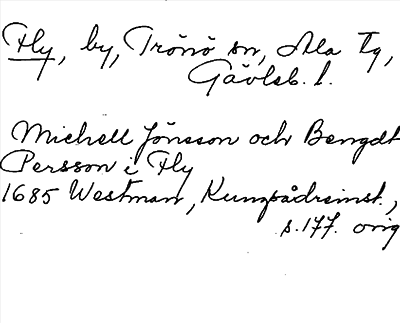 Fly, by, Trönö sn, Ala tg,
Gävleb. l.
Michell Jönsson och Bengdt
Persson i Fly
1685 Westman, Kungsådreinst.,
s. 177. orig